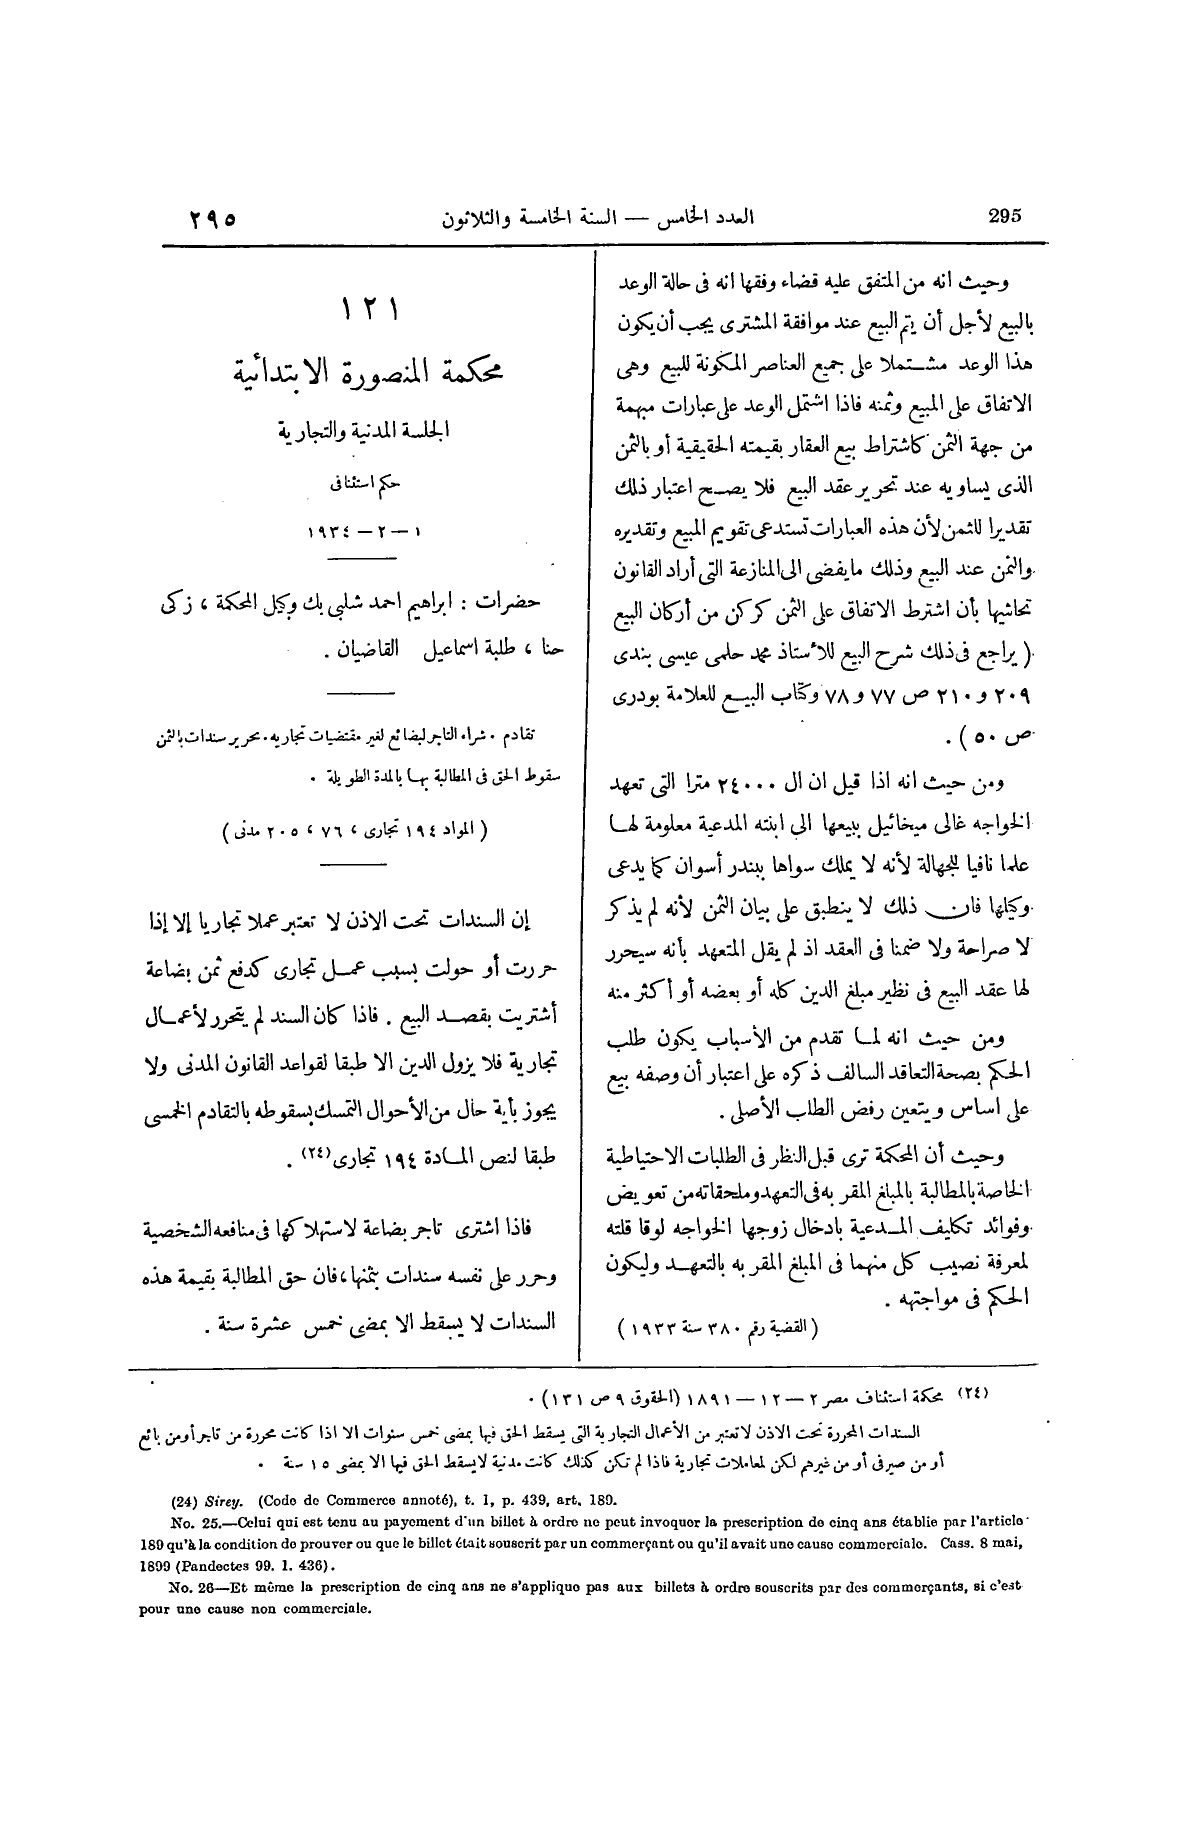 295
العدد الخامس — السنة الخامسة والثلاثون
٢٩٥
وحيث انه من المتفق عليه قضاء وفقها انه فى حالة الوعد
بالبيع لأجل أن يتم البيع عند موافقة المشترى يجب أن يكون
هذا الوعد مشتملا على جميع العناصر المكونة للبيع وهى
الاتفاق على المبيع وثمنه فاذا اشتمل الوعد على عبارات مبهمة
من جهة الثمن كاشتراط بيع العقار بقيمته الحقيقية أو بالثمن
الذى يساويه عند تحرير عقد البيع فلا يصح اعتبار ذلك
تقديرا للثمن لأن هذه العبارات تستدعى تقويم المبيع وتقديره
والثمن عند البيع وذلك ما يفضى الى المنازعة التى أراد القانون
تحاشيها بأن اشترط الاتفاق على الثمن كركن من أركان البيع
( يراجع فى ذلك شرح البيع للأستاذ محمد حلمى عيسى بندى
٢٠٩ و ٢١٠ ص ٧٧ و ٧٨ وكتاب البيع للعلامة بودرى
ص ٥٠ ) .
ومن حيث انه اذا قيل ان ال ٢٤٠٠٠ مترا التى تعهد
الخواجه غالى ميخائيل ببيعها الى ابنته المدعية معلومة لها
علما نافيا للجهالة لأنه لا يملك سواها ببندر أسوان كما يدعى
وكيلها فان ذلك لا ينطبق على بيان الثمن لأنه لم يذكر
لا صراحة ولا ضمنا فى العقد اذ لم يقل المتعهد بأنه سيحرر
لها عقد البيع فى نظير مبلغ الدين كله أو بعضه أو أكثر منه
ومن حيث انه لما تقدم من الأسباب يكون طلب
الحكم بصحة التعاقد السالف ذكره على اعتبار أن وصفه بيع
على اساس ويتعين رفض الطلب الأصلى .
وحيث أن المحكمة ترى قبل النظر فى الطلبات الاحتياطية
الخاصة بالمطالبة بالمبلغ المقر به فى التعهد وملحقاته من تعويض
وفوائد تكليف المدعية بادخال زوجها الخواجه لوقا قلته
لمعرفة نصيب كل منهما فى المبلغ المقر به بالتعهد وليكون
الحكم فى مواجهته .
( القضية رقم ٣٨٠ سنة ١٩٣٣ )
١٢١
محكمة المنصورة الابتدائية
الجلسة المدنية والتجارية
حكم استئنافى
١ — ٢ — ١٩٣٤
حضرات : ابراهيم احمد شلبى بك وكيل المحكمة ، زكى
حنا ، طلبة اسماعيل القاضيان .
تقادم . شراء التاجر لبضائع لغير مقتضيات تجاريه . تحرير سندات بالثمن
سقوط الحق فى المطالبة بها بالمدة الطويلة .
( المواد ١٩٤ تجارى ، ٧٦ ، ٢٠٥ مدنى )
إن السندات تحت الاذن لا تعتبر عملا تجاريا إلا إذا
حررت أو حولت بسبب عمل تجارى كدفع ثمن بضاعة
أشتريت بقصد البيع . فاذا كان السند لم يتحرر لأعمال
تجارية فلا يزول الدين الا طبقا لقواعد القانون المدنى ولا
يجوز بأية حال من الأحوال التمسك بسقوطه بالتقادم الخمسى
طبقا لنص المادة ١٩٤ تجارى (٢٤) .
فاذا اشترى تاجر بضاعة لاستهلاكها فى منافعه الشخصية
وحرر على نفسه سندات بثمنها ، فان حق المطالبة بقيمة هذه
السندات لا يسقط الا بمضى خمس عشرة سنة .
(٢٤) محكمة استئناف مصر ٢ — ١٢ — ١٨٩١ (الحقوق ٩ ص ١٣١) .
السندات المحررة تحت الاذن لا تعتبر من الأعمال التجارية التى يسقط الحق فيها بمضى خمس سنوات الا اذا كانت محررة من تاجر أو من بائع
أو من صيرفى أو من غيرهم لكن لمعاملات تجارية فاذا لم تكن كذلك كانت مدنية لا يسقط الحق فيها الا بمضى ١٥ سنة .
(24) Sirey. (Code de Commerce annoté), t. 1, p. 439, art. 189.
No. 25.—Celui qui est tenu au payement d'un billet à ordre ne peut invoquer la prescription de cinq ans établie par l'article
189 qu'à la condition de prouver ou que le billet était souscrit par un commerçant ou qu'il avait une cause commerciale. Cass. 8 mai,
1899 (Pandectes 99. 1. 436).
No. 26—Et même la prescription de cinq ans ne s'applique pas aux billets à ordre souscrits par des commerçants, si c'est
pour une cause non commerciale.